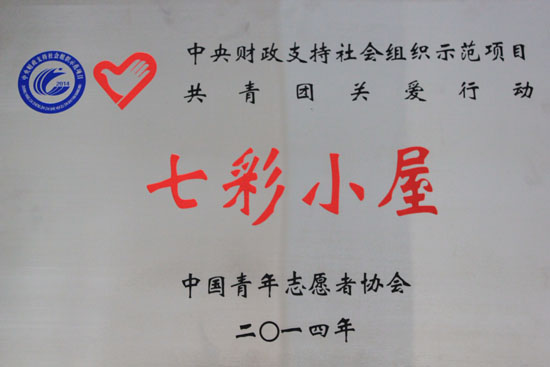 中央财政支持社会组织示范项目
共青团关爱行动
七彩小屋
中国青年志愿者协会
二〇一四年
2014